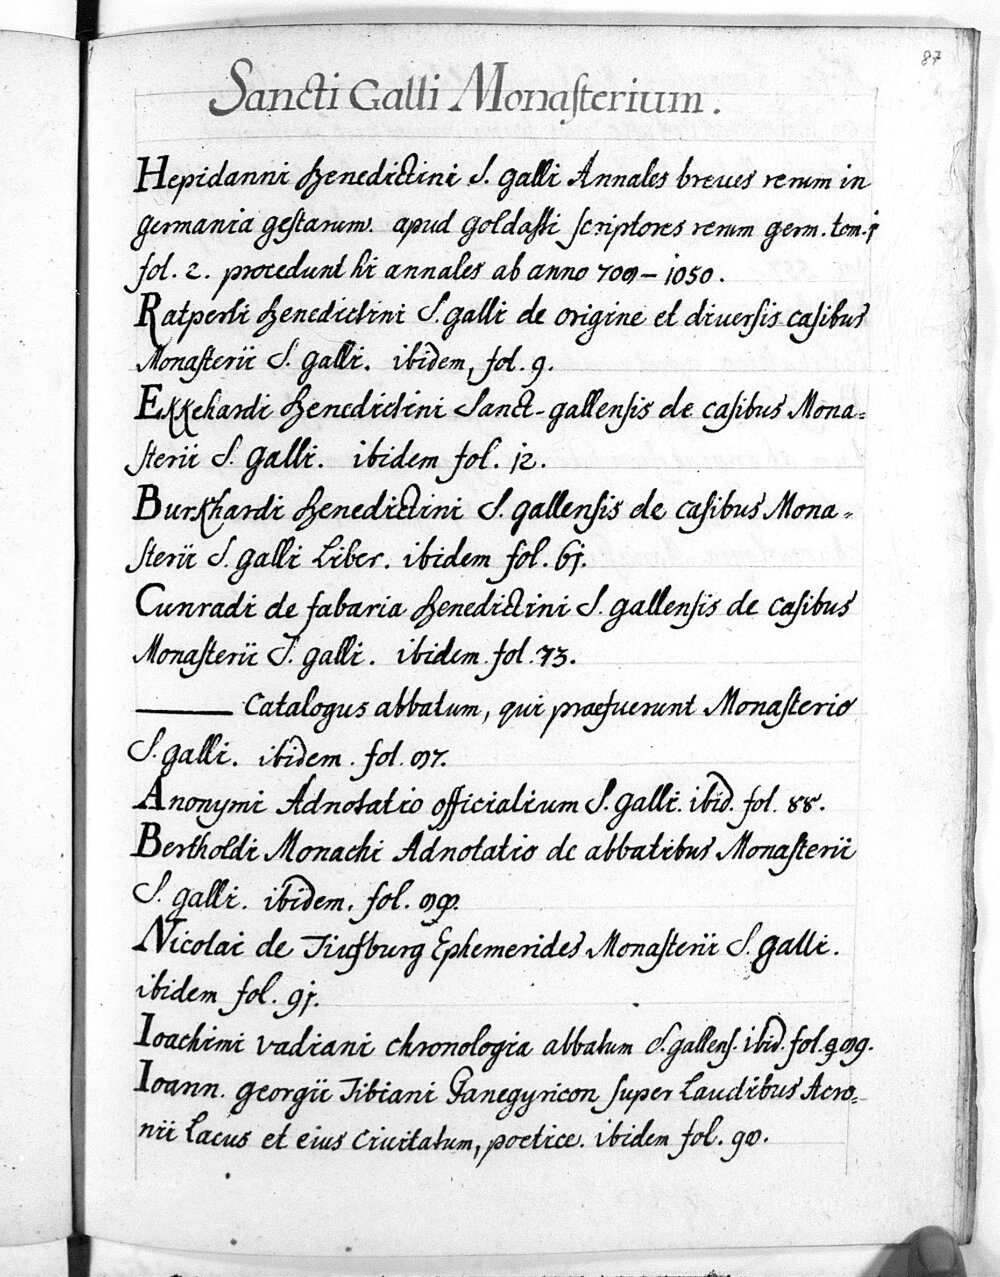 87
Sancti Galli Monasterium.
Hepidanni Benedictini S. Galli Annales breves rerum in
germania gestarum. apud Goldasti scriptores rerum germ. tom. j
fol. 2. procedunt hi annales ab anno 709 – 1050.
Ratperti Benedictini S. galli de origine et diversis casibus
Monasterii S. galli. ibidem, fol. 9.
Ekkehardi Benedictini Sanct-gallensis de casibus Mona=
sterii S. galli. ibidem fol. 12.
Burkhardi Benedictini S. gallensis de casibus Mona=
sterii S. galli Liber. ibidem fol. 6j.
Cunradi de fabaria Benedictini S. gallensis de casibus
Monasterii S. galli. ibidem fol. 73.
——— Catalogus abbatum, qui praefuerunt Monasterio
S. galli. ibidem. fol.
Anonymi Adnotatio officialium S. galli. ibid. fol. 88.
Bertholdi Monachi Adnotatio de abbatibus Monasterii
S. galli. ibidem. fol.
Nicolai de Ephemerides Monasterii S. galli.
ibidem fol. 9j.
Ioachimi vadiani chronologia abbatum S. gallens. ibid. fol.
Ioann. georgii Tibiani Panegyricon super Laudibus Acro=
nii Lacus et eius Civitatum, poetice. ibidem fol.